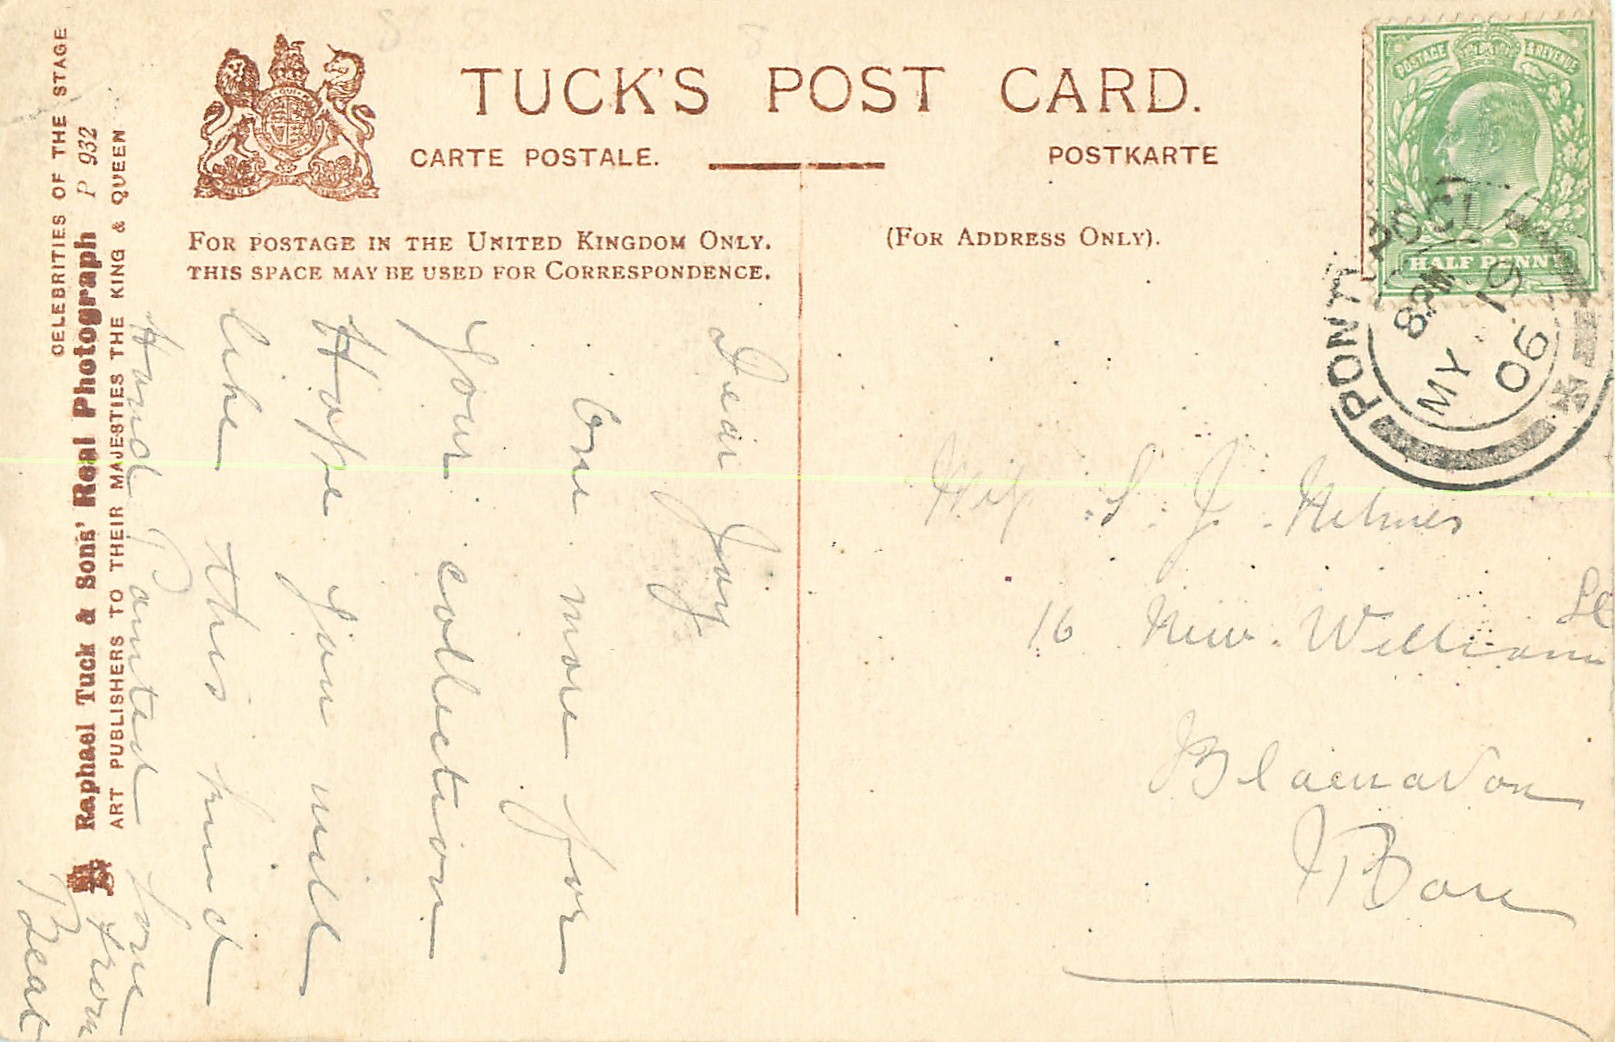 TUCK'S POST CARD.
CARTE POSTALE.
POSTKARTE
FOR POSTAGE IN THE UNITED KINGDOM ONLY.
THIS SPACE MAY BE USED FOR CORRESPONDENCE.
(FOR ADDRESS ONLY).
CELEBRITIES OF THE STAGE
Raphael Tuck & Sons' Real Photograph P 932
ART PUBLISHERS TO THEIR MAJESTIES THE KING & QUEEN
POSTAGE & REVENUE
HALF PENNY
PONT
8PM
MY 19
06
Dear
One more for
Your collection
Hope you will
like this kind
Hand Painted love
from
Beat
S. J.
16 New William St
Blaenavon